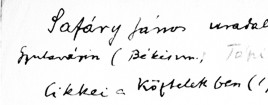 Safáry János uradal
Gyulavárin (Békésm.)
Cikkei a Köztelekben (